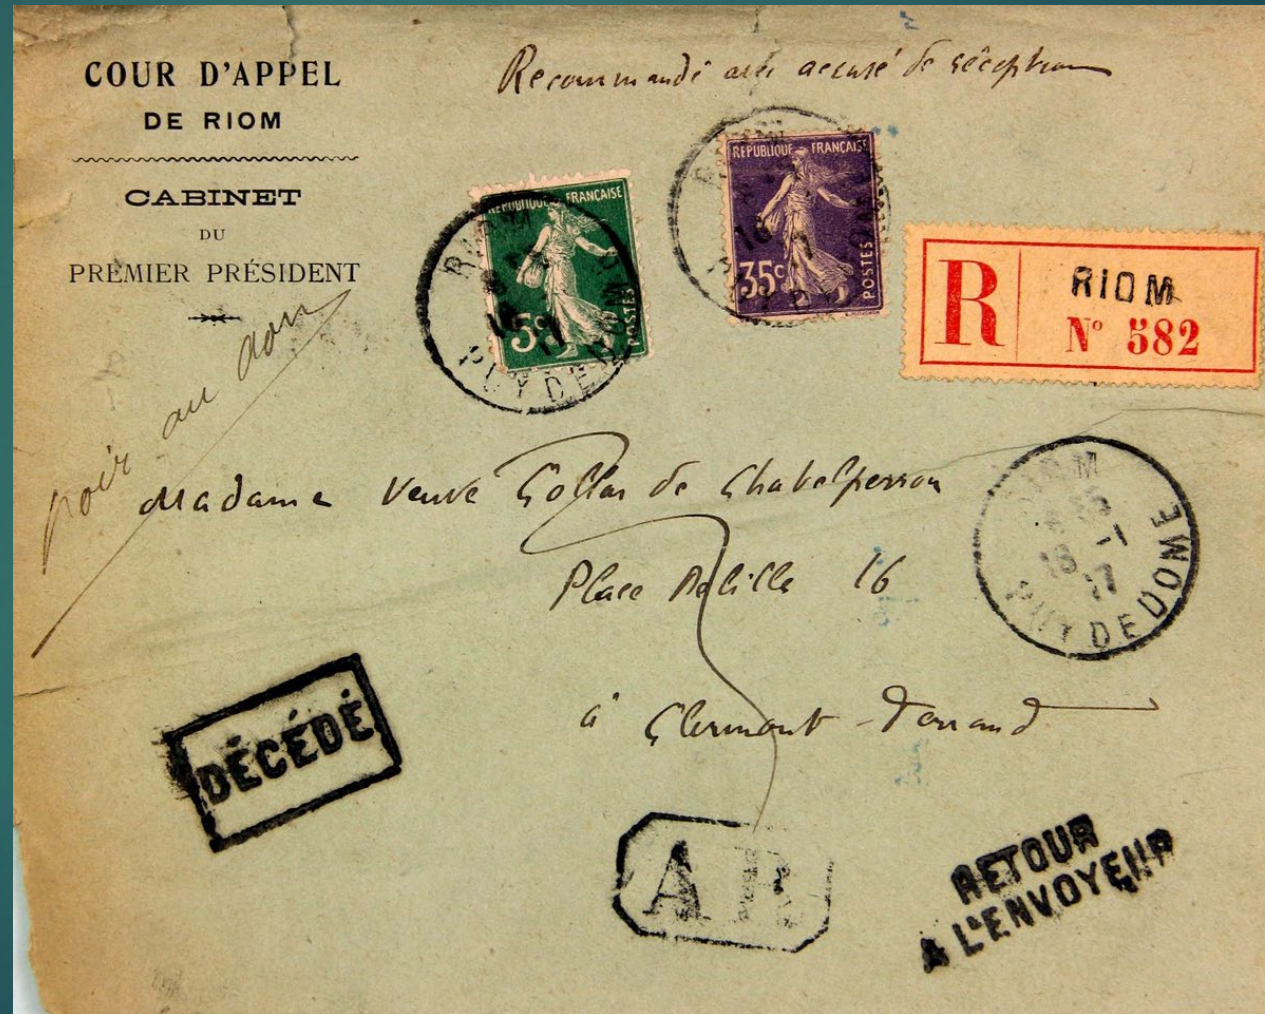 COUR D'APPEL
DE RIOM
CABINET
DU
PREMIER PRÉSIDENT
Recommandé avec accusé de réception
REPUBLIQUE FRANÇAISE
5c
POSTES
RIOM
PUY DE DOME
REPUBLIQUE FRANÇAISE
35c
POSTES
16 -1
PUY DE DOME
R
RIOM
N° 582
voir au dos
Madame Veuve Collas de Chatelperron
Place Delille 16
à Clermont-Ferrand
RIOM
18 -1
17
PUY DE DOME
DÉCÉDÉ
AR
RETOUR
A L'ENVOYEUR